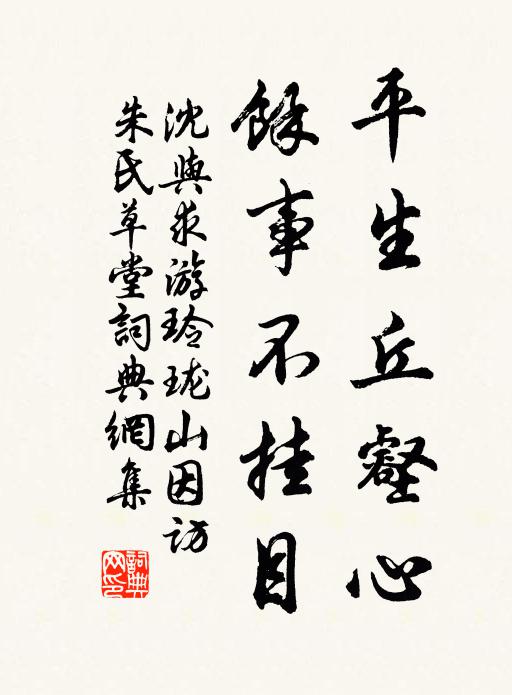 平生丘壑心
餘事不挂目
沈與求游玲瓏山因訪
朱氏草堂詞典網集
詞典
网印